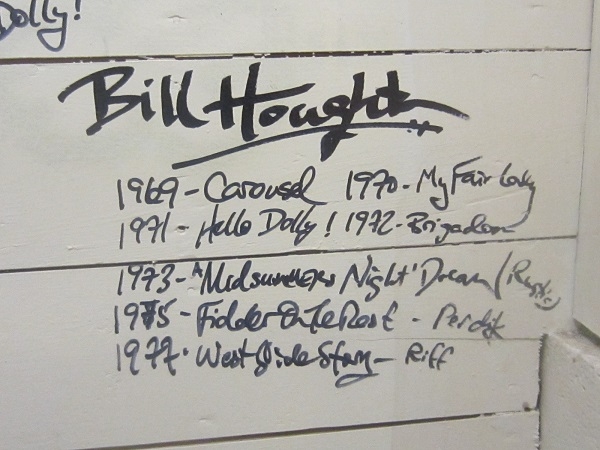 Dolly!
Bill Hought
1969 - Carousel 1970 - My Fair Lady
1971 - Hello Dolly! 1972 - Brigadoon
1973 - "Midsummers Night" Dream (
1975 - Fiddler On The Roof - Perchik
1977 - West Side Story - Riff